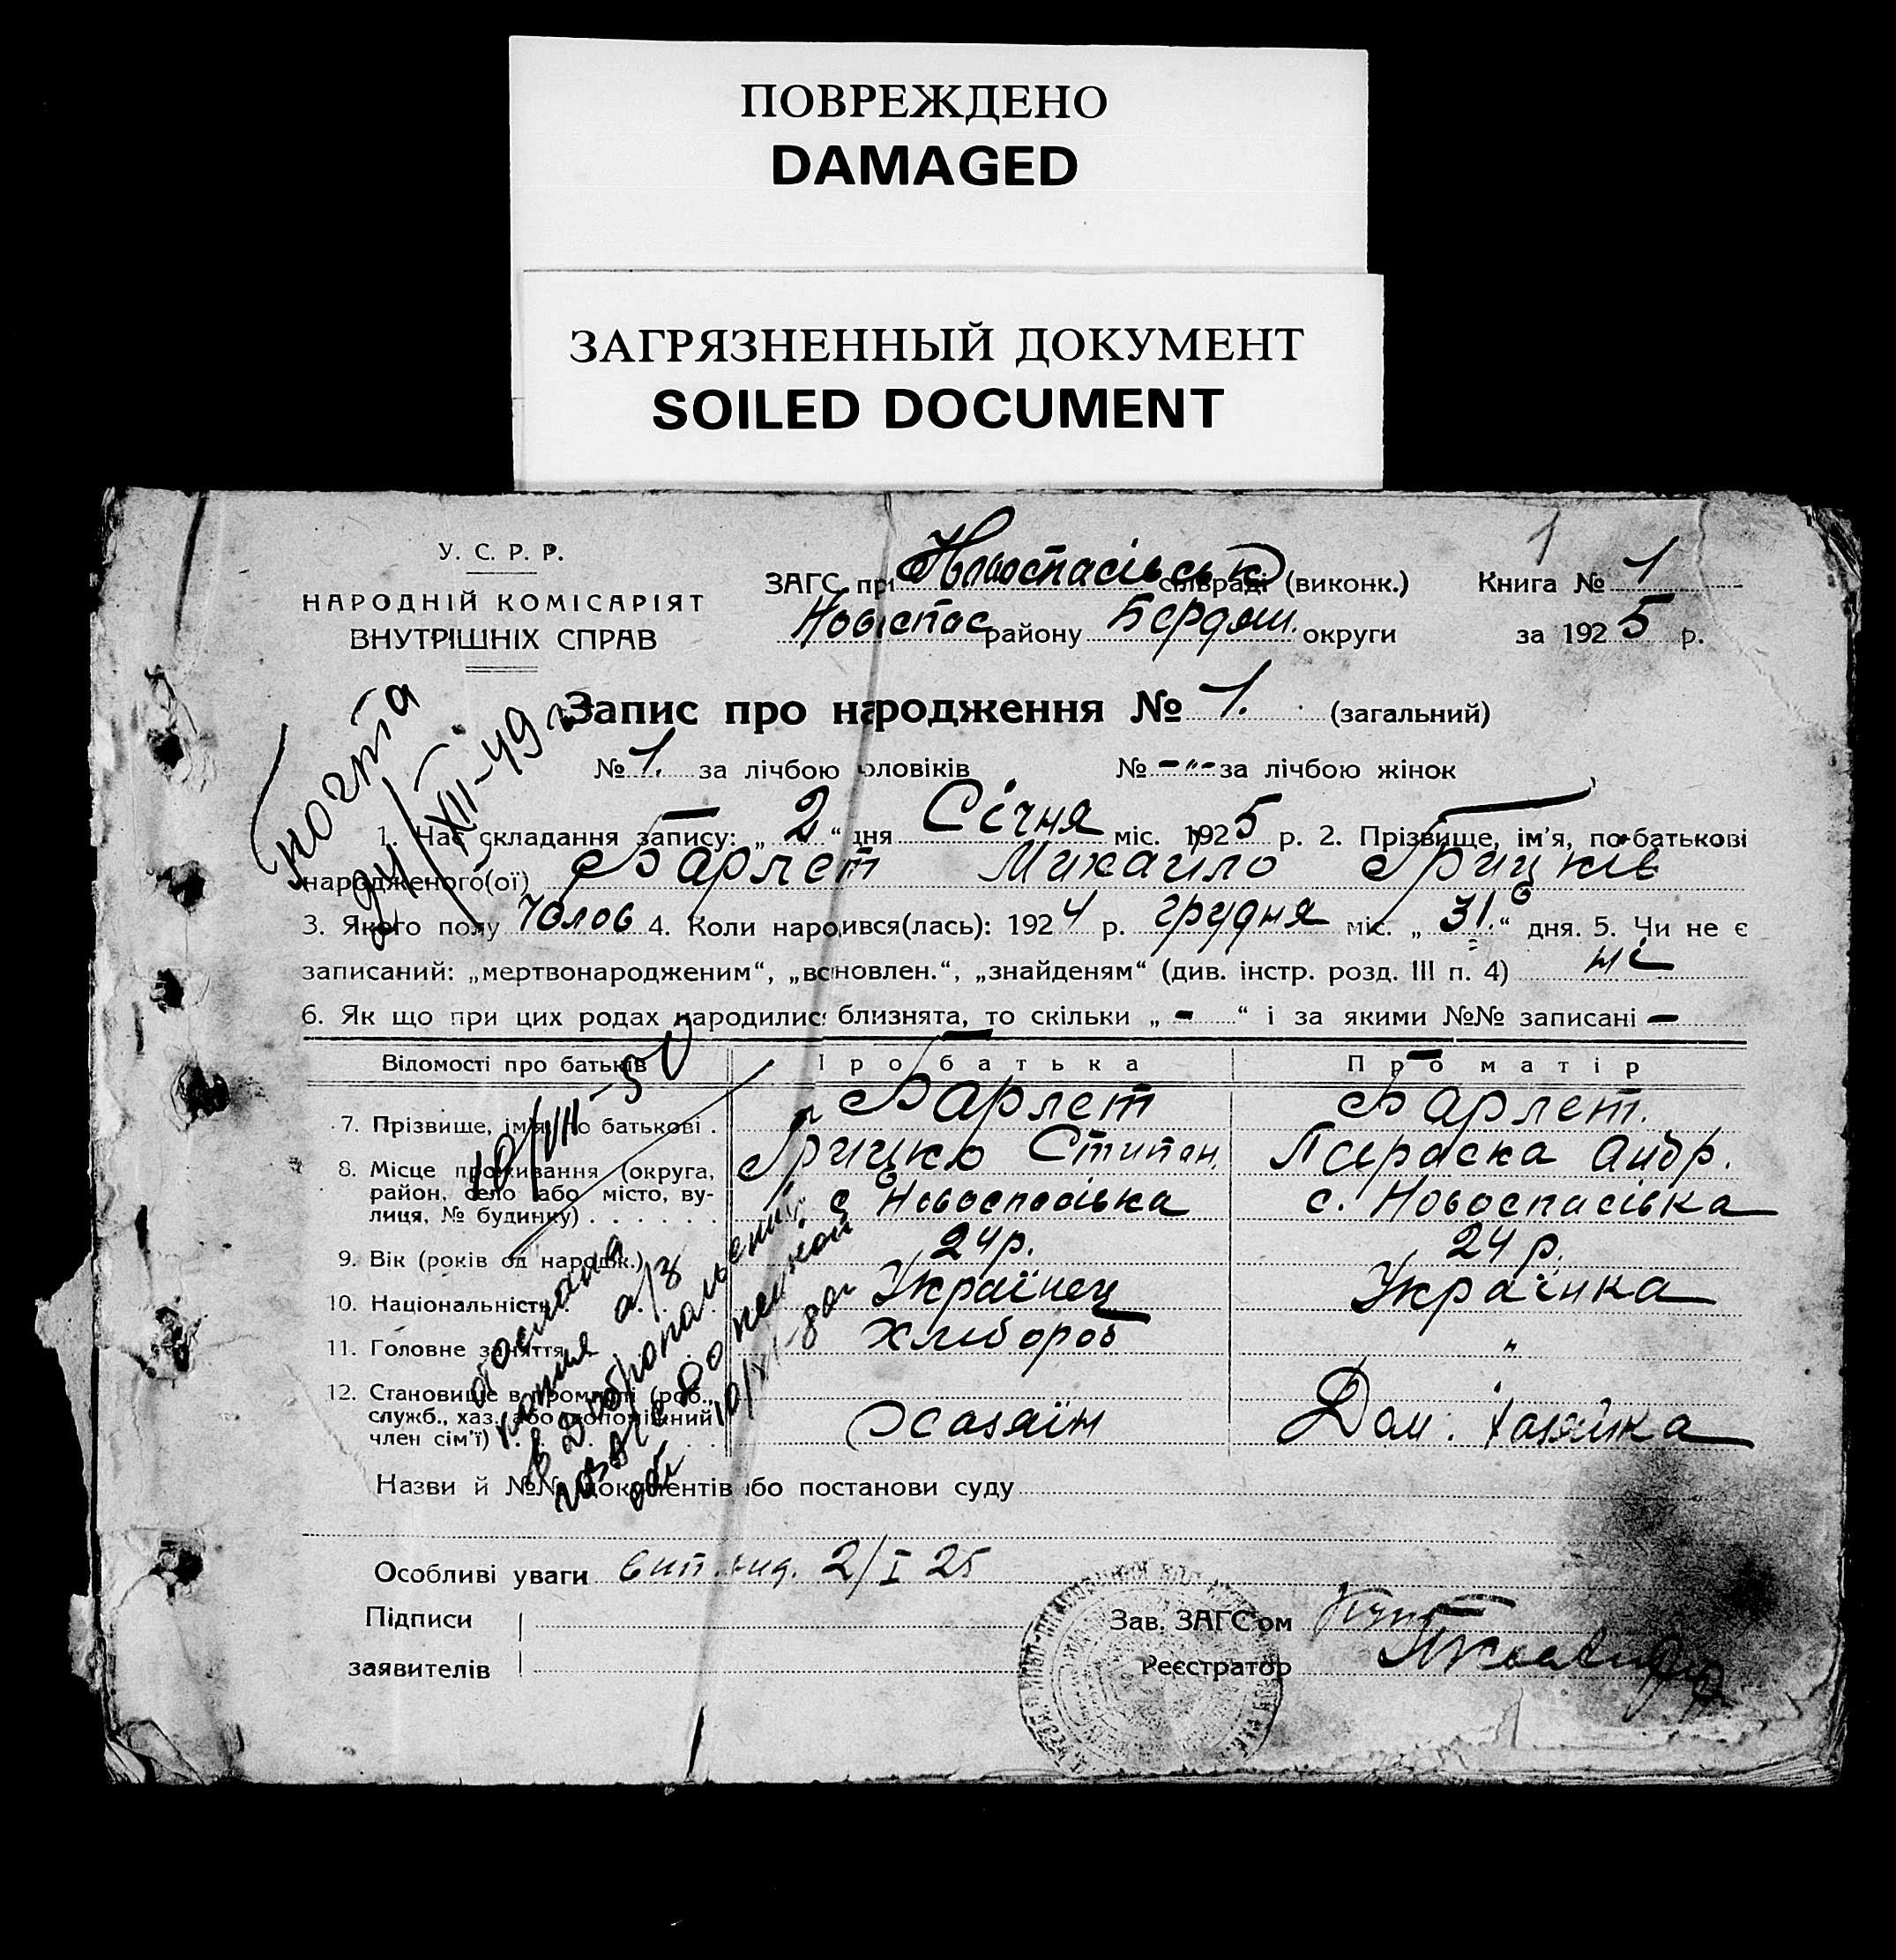 ПОВРЕЖДЕНО
DAMAGED
ЗАГРЯЗНЕННЫЙ ДОКУМЕНТ
SOILED DOCUMENT
1
У. С. Р. Р.
НАРОДНІЙ КОМІСАРІЯТ
ВНУТРІШНІХ СПРАВ
ЗАГС при Новоспасівськ сільраді (виконк.) Книга № 1
Новоспас району Бердян. округи за 1925 р.
Запис про народження № 1. (загальний)
№ 1. за лічбою чоловіків № -"- за лічбою жінок
24/XII-49 г
1. Час складання запису: „2“ дня Січня міс. 1925 р. 2. Прізвище, ім'я, по-батькові
народженого(ої) Барлет Михайло Грицків
3. Якого полу Чолов 4. Коли народився(лась): 1924 р. грудня міс. „31.“ дня. 5. Чи не є
записаний: „мертвонародженим“, „встановлен.“, „знайденям“ (див. інстр. розд. III п. 4) ні
6. Як що при цих родах народились близнята, то скільки „-“ і за якими №№ записані -
Відомості про батьків Про батька Про матір
7. Прізвище, ім'я, по батькові . Барлет Барлет.
Грицко Степан. Параска Андр.
8. Місце проживання (округа, район, село або місто, вулиця, № будинку) . . . . . . с Новоспасівка с. Новоспасівка
10/VIII-50
9. Вік (років од народж.) 24р. 24 р.
10. Національність Українец Українка
11. Головне заняття Хлібороб "
12. Становище в промислі (роб., служб., хаз. або допоміжний член сім'ї) Хазяїн Дом. хазяйка
отослана
копия а/з
в Добропольский
обл
Назви й №№ документів або постанови суду
Особливі уваги вип. вид. 2/I 25
Підписи
заявителів
Зав. ЗАГС'ом
Реєстратор